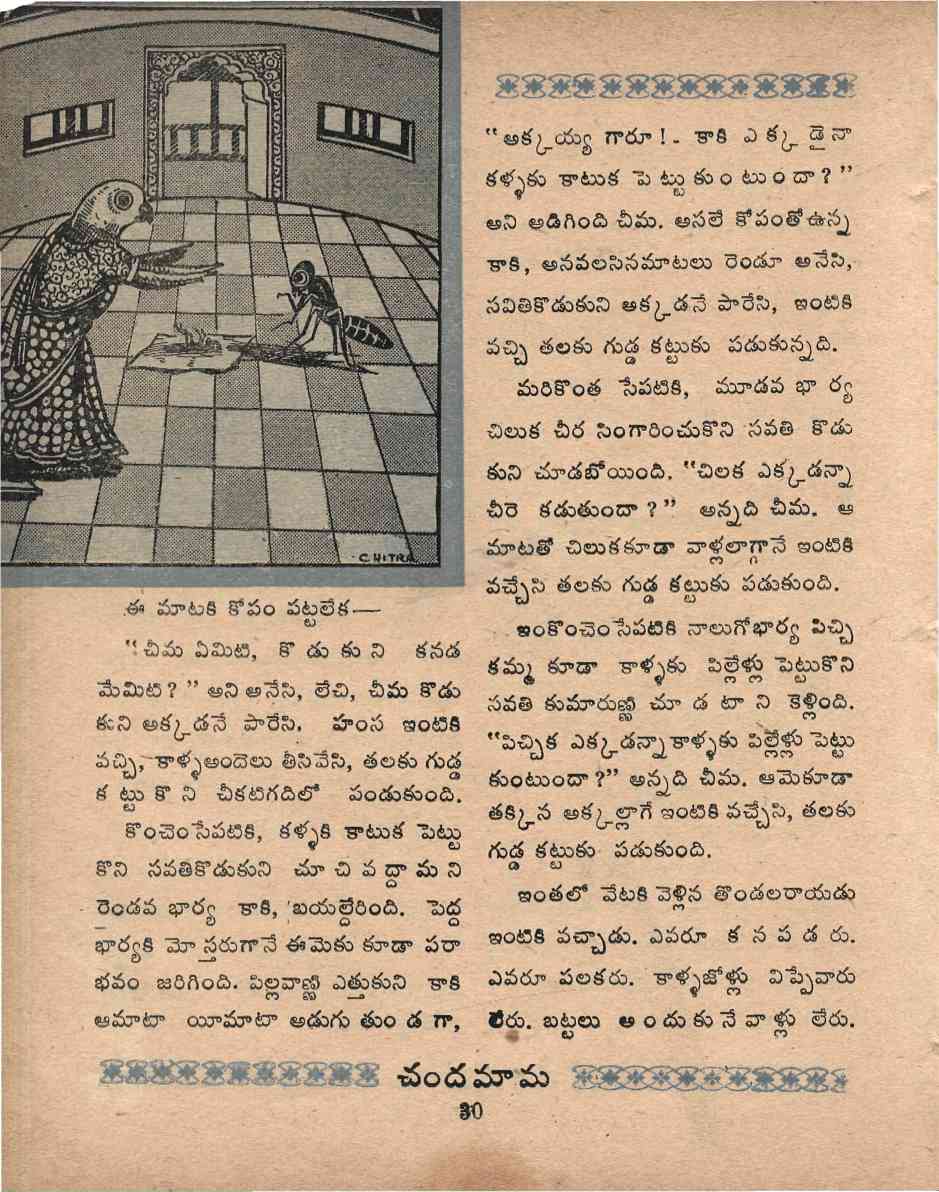 CHITRA
ఈ మాటకి కోపం పట్టలేక—
“చీమ ఏమిటి, కొడుకుని కనడ
మేమిటి?” అని అనేసి, లేచి, చీమ కొడు
కుని అక్కడనే పారేసి, హంస ఇంటికి
వచ్చి, కాళ్ళఅందెలు తీసివేసి, తలకు గుడ్డ
కట్టుకొని చీకటిగదిలో పండుకుంది.
కొంచెంసేపటికి, కళ్ళకి కాటుక పెట్టు
కొని సవతికొడుకుని చూచివద్దామని
రెండవ భార్య కాకి, బయల్దేరింది. పెద్ద
భార్యకి మోస్తరుగానే ఈమెకు కూడా పరా
భవం జరిగింది. పిల్లవాణ్ణి ఎత్తుకుని కాకి
ఆమాటా యీమాటా అడుగుతుండగా,
“అక్కయ్య గారూ!- కాకి ఎక్కడైనా
కళ్ళకు కాటుక పెట్టుకుంటుందా?”
అని అడిగింది చీమ. అసలే కోపంతోఉన్న
కాకి, అనవలసినమాటలు రెండూ అనేసి,
సవితికొడుకుని అక్కడనే పారేసి, ఇంటికి
వచ్చి తలకు గుడ్డ కట్టుకు పడుకున్నది.
మరికొంత సేపటికి, మూడవ భార్య
చిలుక చీర సింగారించుకొని సవతి కొడు
కుని చూడబోయింది. “చిలక ఎక్కడన్నా
చీరె కడుతుందా?” అన్నది చీమ. ఆ
మాటతో చిలుకకూడా వాళ్లలాగ్గానే ఇంటికి
వచ్చేసి తలకు గుడ్డ కట్టుకు పడుకుంది.
ఇంకొంచెంసేపటికి నాలుగోభార్య పిచ్చి
కమ్మ కూడా కాళ్ళకు పిల్లేళ్లు పెట్టుకొని
సవతి కుమారుణ్ణి చూడటాని కెళ్లింది.
“పిచ్చిక ఎక్కడన్నా కాళ్ళకు పిల్లేళ్లు పెట్టు
కుంటుందా?” అన్నది చీమ. ఆమెకూడా
తక్కిన అక్కల్లాగే ఇంటికి వచ్చేసి, తలకు
గుడ్డ కట్టుకు పడుకుంది.
ఇంతలో వేటకి వెళ్లిన తొండలరాయడు
ఇంటికి వచ్చాడు. ఎవరూ కనపడరు.
ఎవరూ పలకరు. కాళ్ళజోళ్లు విప్పేవారు
లేరు. బట్టలు అందుకునేవాళ్లు లేరు.
చందమామ
30